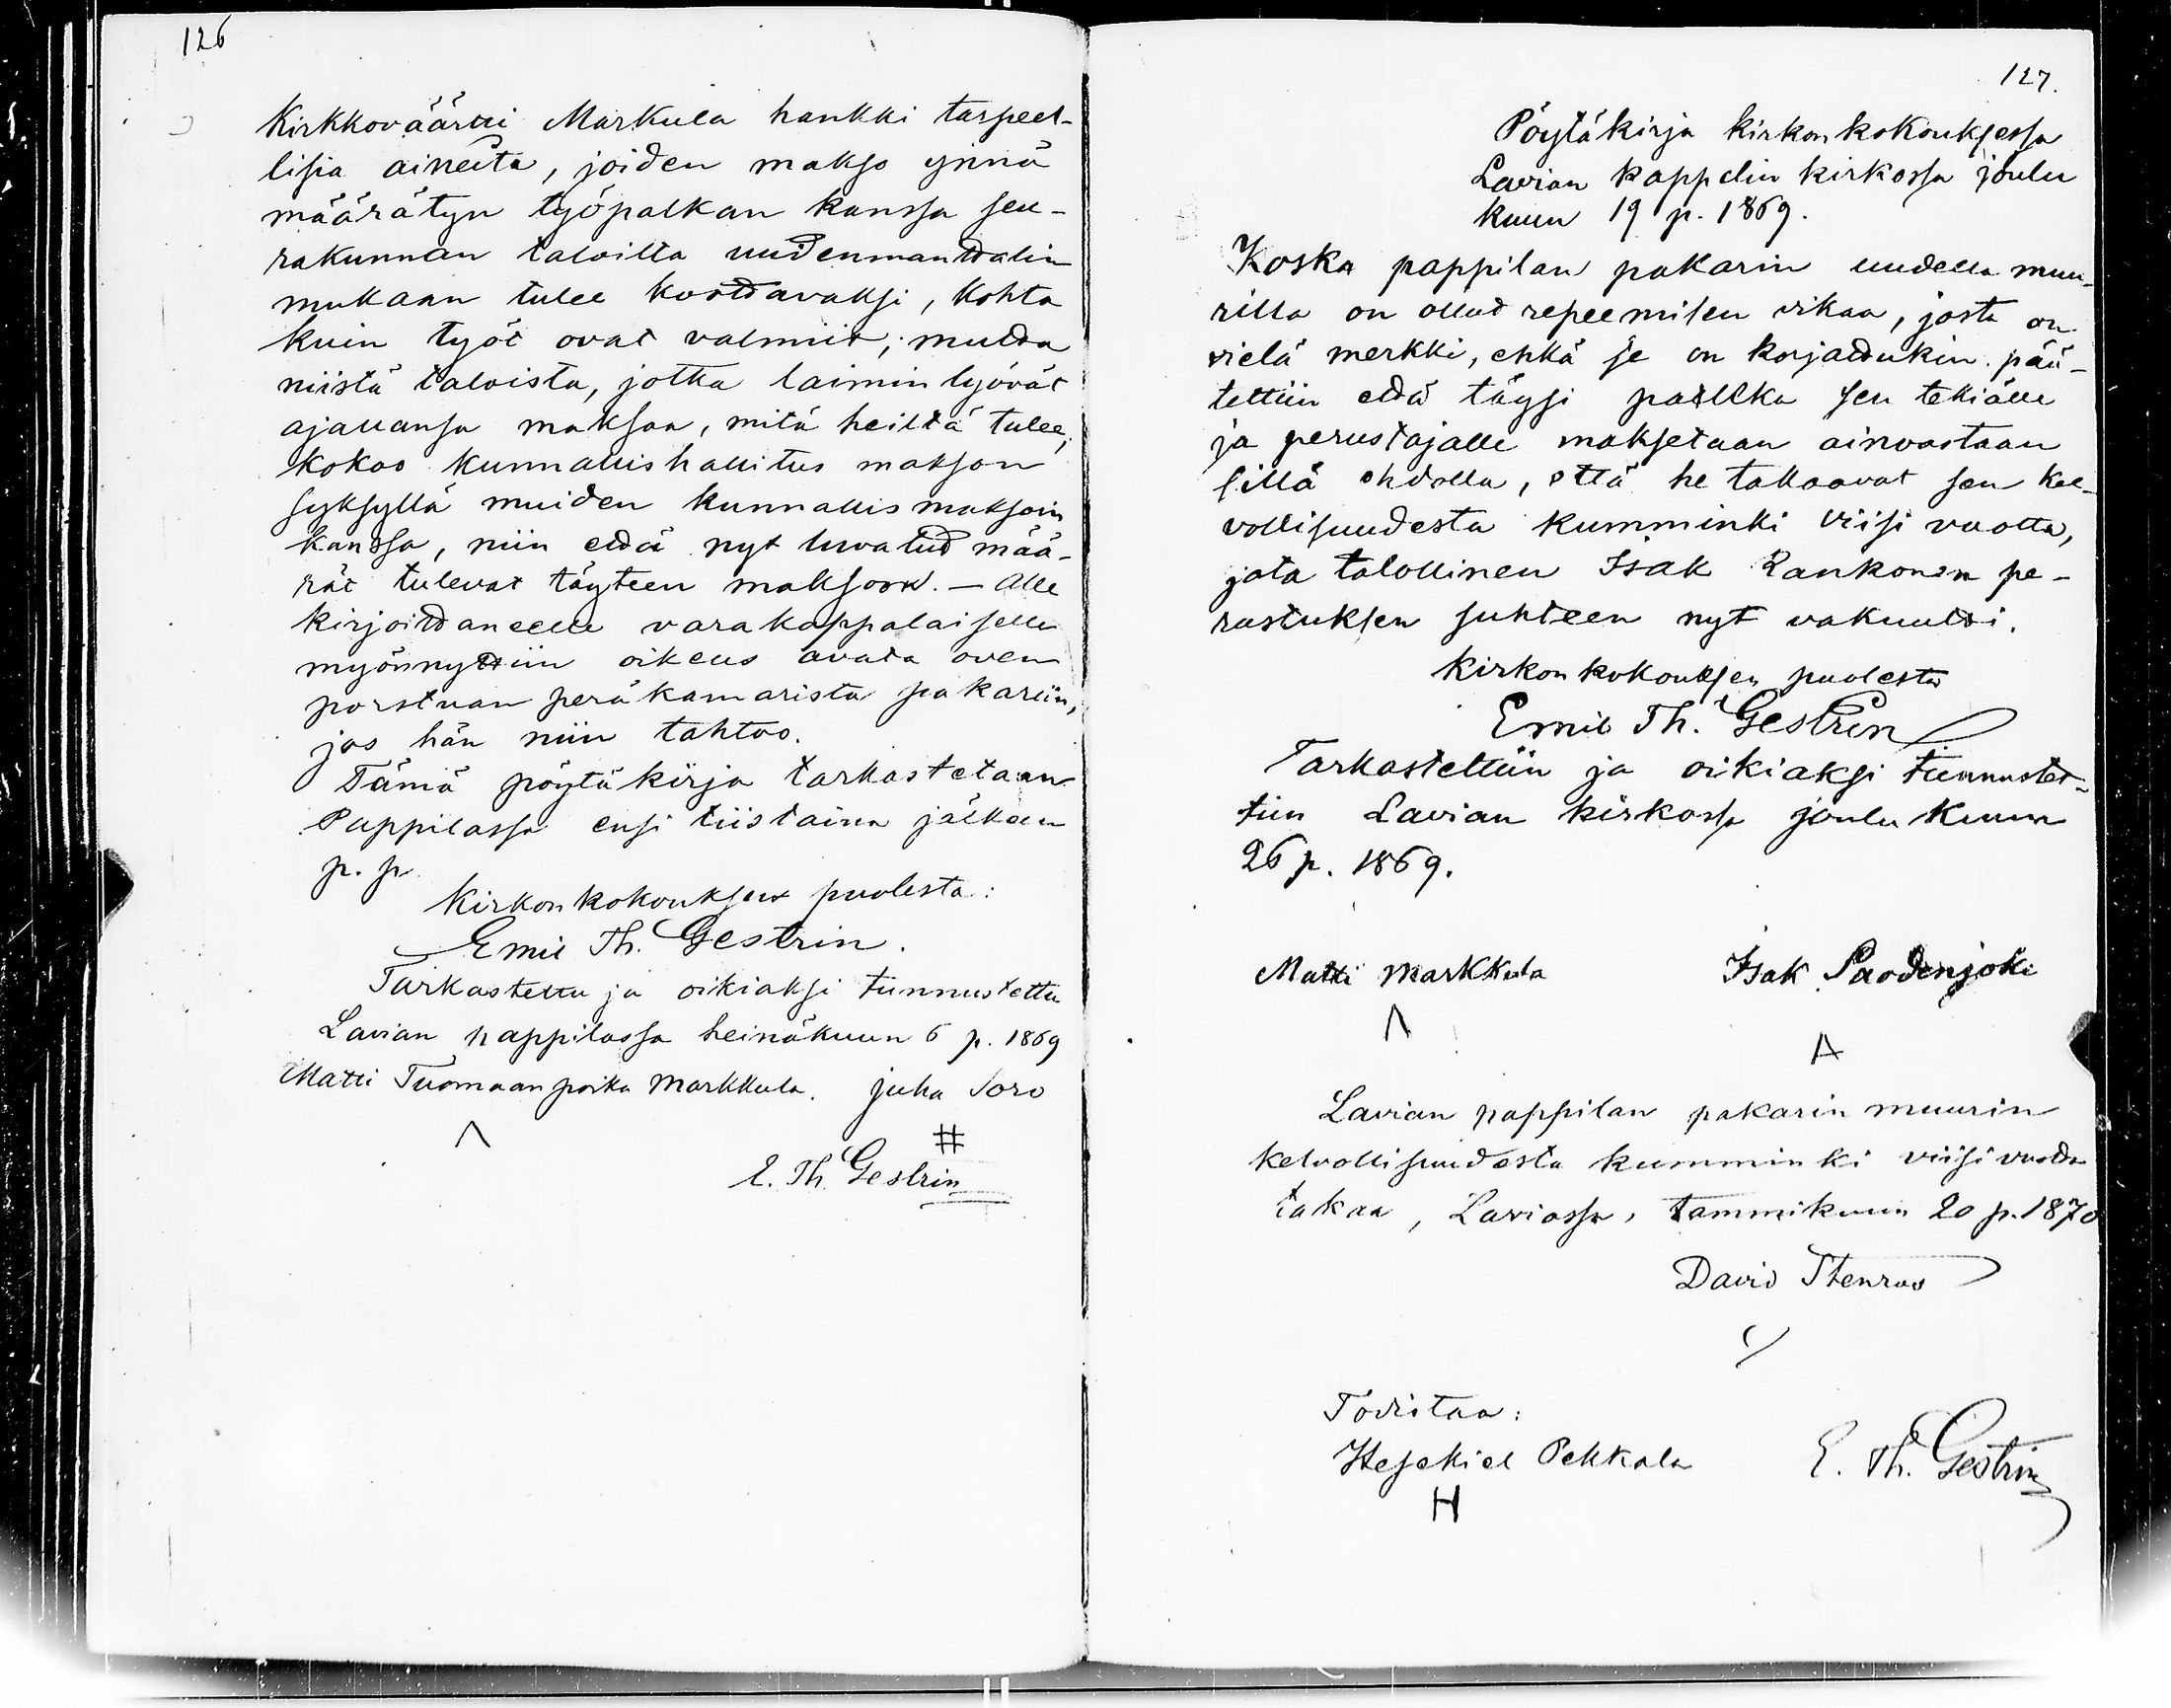 126
Kirkkovääruli Markula hankki tarpeel-
lisia aineita, joiden makso ynnä
määrätyn työpalkan kanssa seu-
rakunnan taloilta uudenmanttalin
mukaan tulee kosttavaksi, kohta
kuin työt ovat valmiit; mutta
niistä taloista, jotka laimin lyövät
ajallansa maksaa, mitä heiltä tulee,
kokoo kunnallishallitus makson
syksyllä muiden kunnallis maksoin
kanssa, niin että nyt luvatud mää-
rät tulevat täyteen maksoon. — Alle
kirjoittaneelle varakappalaiselle
myönnyttiin oikeus avata oven
porstuan peräkamarista pakariin,
jos hän niin tahtoo.
Tämä pöytäkirja tarkastetaan
Pappilassa ensi tiistaina jälkeen
p. p.
Kirkonkokouksen puolesta:
Emil Th. Gestrin.
Tarkastettu ja oikiaksi tunnustettu
Lavian pappilassa heinäkuun 6 p. 1869
Matti Tuomaanpoika Markkula. Juha Soro
Λ #
E. Th. Gestrin
127.
Pöytäkirja kirkonkokouksessa
Lavian kappelin kirkossa joulu
kuun 19 p. 1869.
Koska pappilan pakarin uudella muu-
rilla on ollud repeemisen vikaa, josta on
vielä merkki, ehkä se on korjattukin pää-
tettiin että täysi palkka sen tekiälle
ja perustajalle maksetaan ainoastaan
sillä ehdolla, että he takaavat sen kel-
vollisuudesta kumminki viisi vuotta,
jota talollinen Isak Rankonen pe-
rustuksen suhteen nyt vakuutti.
Kirkonkokouksen puolesta
Emil Th. Gestrin
Tarkastettiin ja oikiaksi tunnustet-
tiin Lavian kirkossa joulu kuun
26 p. 1869.
Matti Markkula Isak Paodenjoki
Λ A
Lavian pappilan pakarin muurin
kelvollisuudesta kumminki viisi vuotta
takaa, Laviassa, tammikuun 20 p. 1870
David Stenroos
Todistaa:
Hesekiel Pekkala E. Th. Gestrin
H